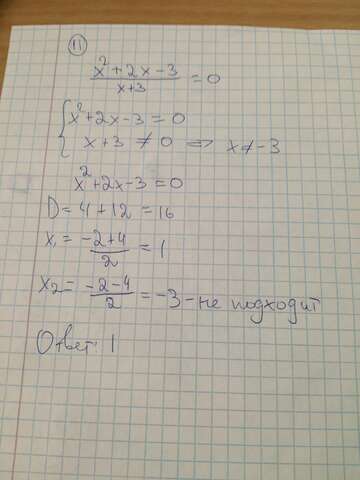 11
x²+2x-3 / x+3 = 0
{ x²+2x-3=0
x+3 ≠ 0 => x≠-3
x²+2x-3=0
D=4+12=16
x₁ = -2+4 / 2 = 1
x₂ = -2-4 / 2 = -3 - не подходит
Ответ: 1